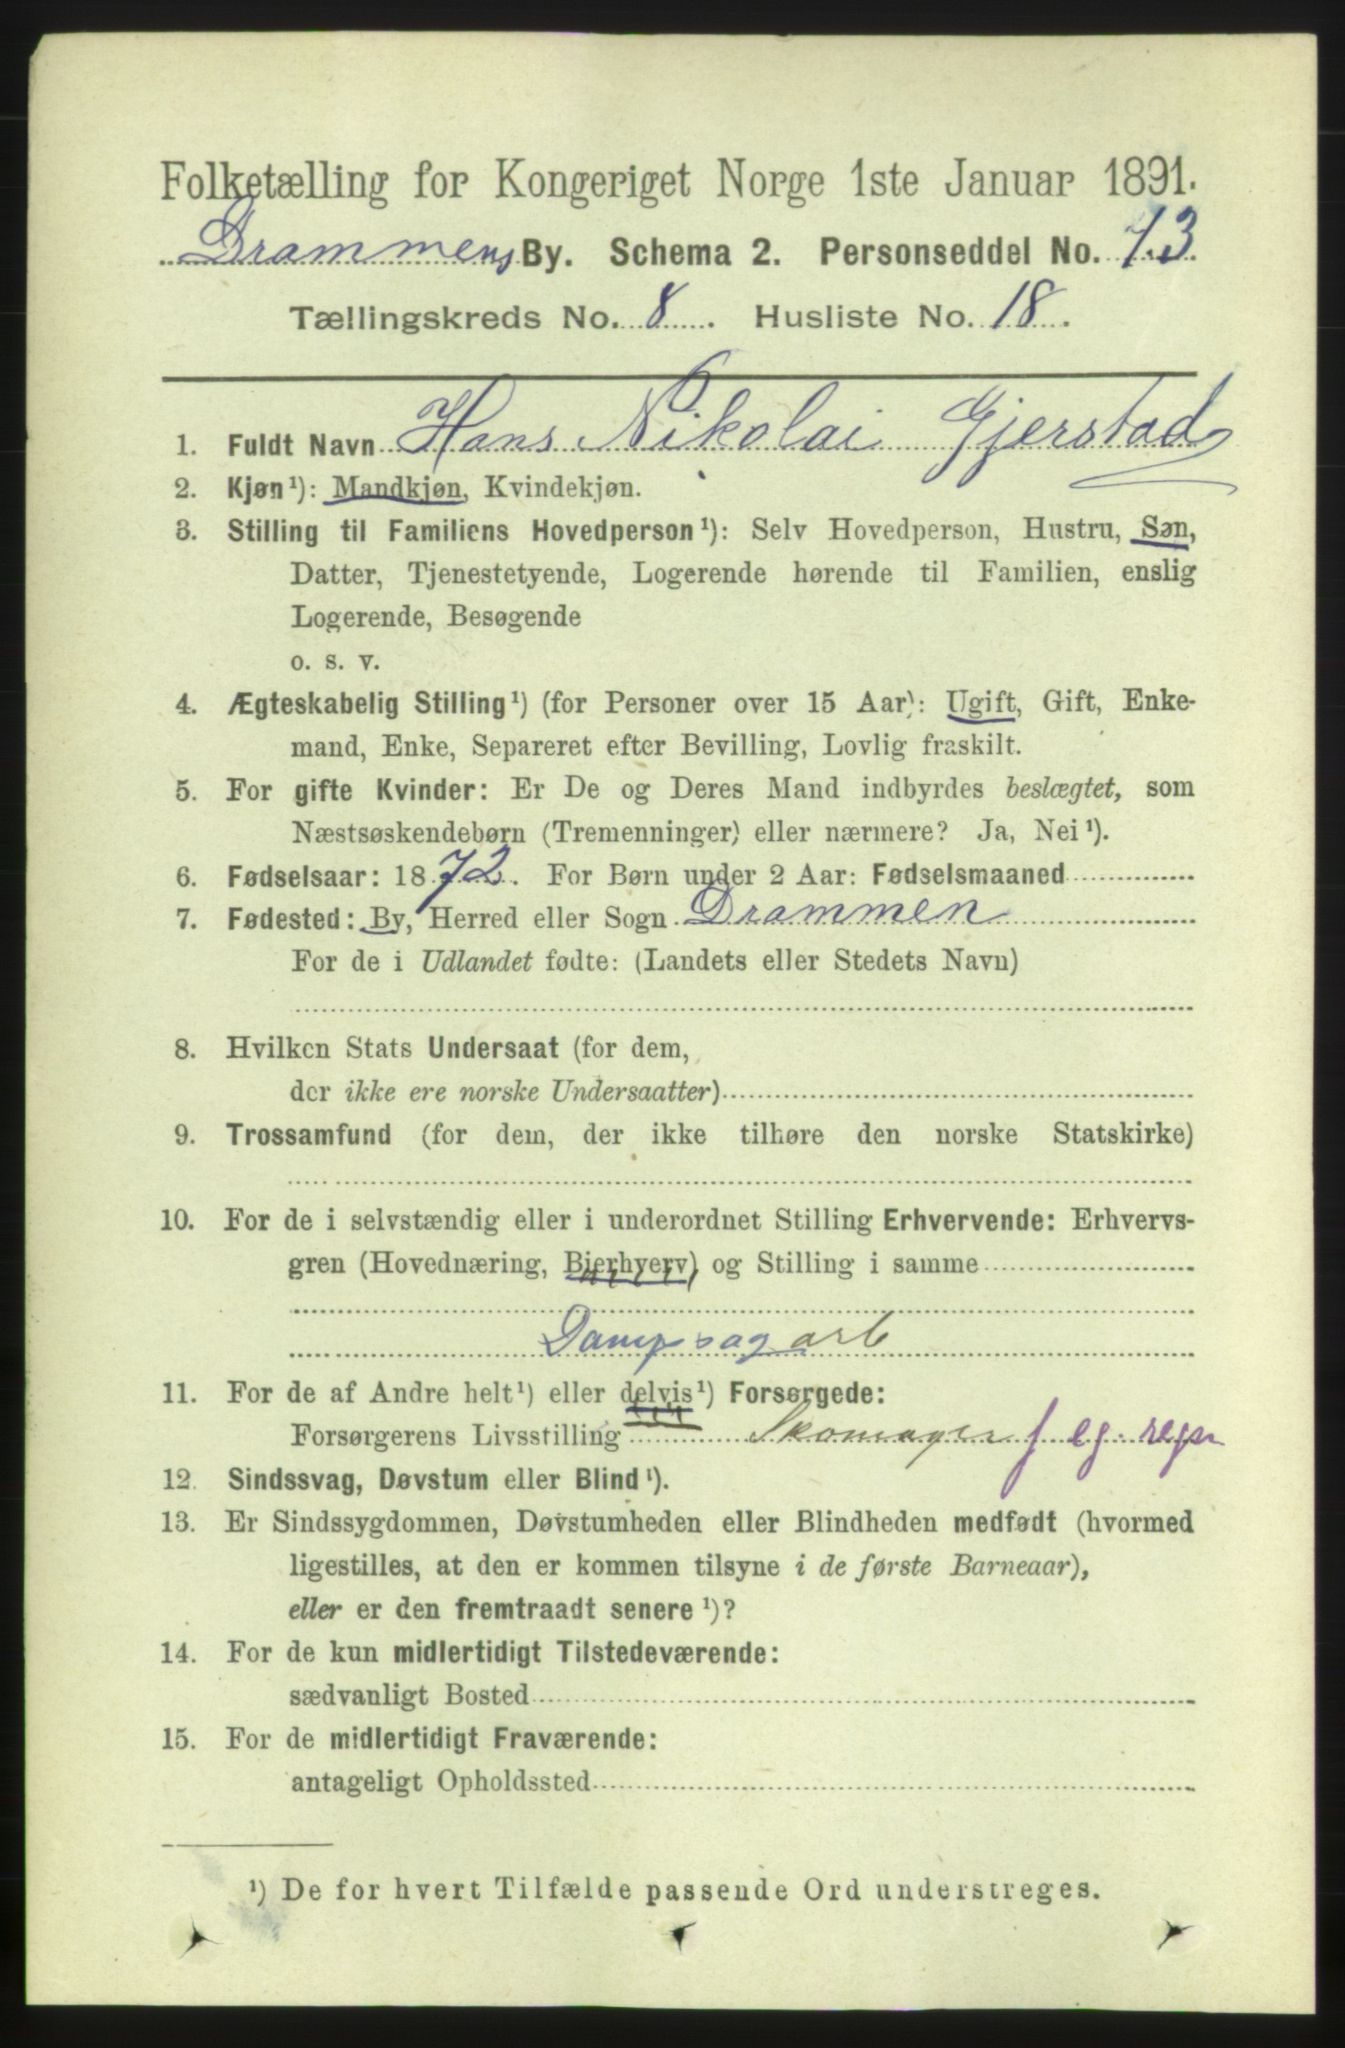 Folketælling for Kongeriget Norge 1ste Januar 1891.
Drammens By. Schema 2. Personseddel No. 73
Tællingskreds No. 8. Husliste No. 18.
1. Fuldt Navn Hans Nikolai Gjerstad
2. Kjøn¹): Mandkjøn, Kvindekjøn.
3. Stilling til Familiens Hovedperson¹): Selv Hovedperson, Hustru, Søn,
Datter, Tjenestetyende, Logerende hørende til Familien, enslig
Logerende, Besøgende
o. s. v.
4. Ægteskabelig Stilling¹) (for Personer over 15 Aar): Ugift, Gift, Enke-
mand, Enke, Separeret efter Bevilling, Lovlig fraskilt.
5. For gifte Kvinder: Er De og Deres Mand indbyrdes beslægtet, som
Næstsøskendebørn (Tremenninger) eller nærmere? Ja, Nei¹).
6. Fødselsaar: 1872. For Børn under 2 Aar: Fødselsmaaned
7. Fødested: By, Herred eller Sogn Drammen
For de i Udlandet fødte: (Landets eller Stedets Navn)
8. Hvilken Stats Undersaat (for dem,
der ikke ere norske Undersaatter)
9. Trossamfund (for dem, der ikke tilhøre den norske Statskirke)
10. For de i selvstændig eller i underordnet Stilling Erhvervende: Erhvervs-
gren (Hovednæring, Bierhverv) og Stilling i samme
Dampsagarb
11. For de af Andre helt¹) eller delvis¹) Forsørgede:
Forsørgerens Livsstilling Skomager f eg. regn
12. Sindssvag, Døvstum eller Blind¹).
13. Er Sindssygdommen, Døvstumheden eller Blindheden medfødt (hvormed
ligestilles, at den er kommen tilsyne i de første Barneaar),
eller er den fremtraadt senere¹)?
14. For de kun midlertidigt Tilstedeværende:
sædvanligt Bosted
15. For de midlertidigt Fraværende:
antageligt Opholdssted
¹) De for hvert Tilfælde passende Ord understreges.